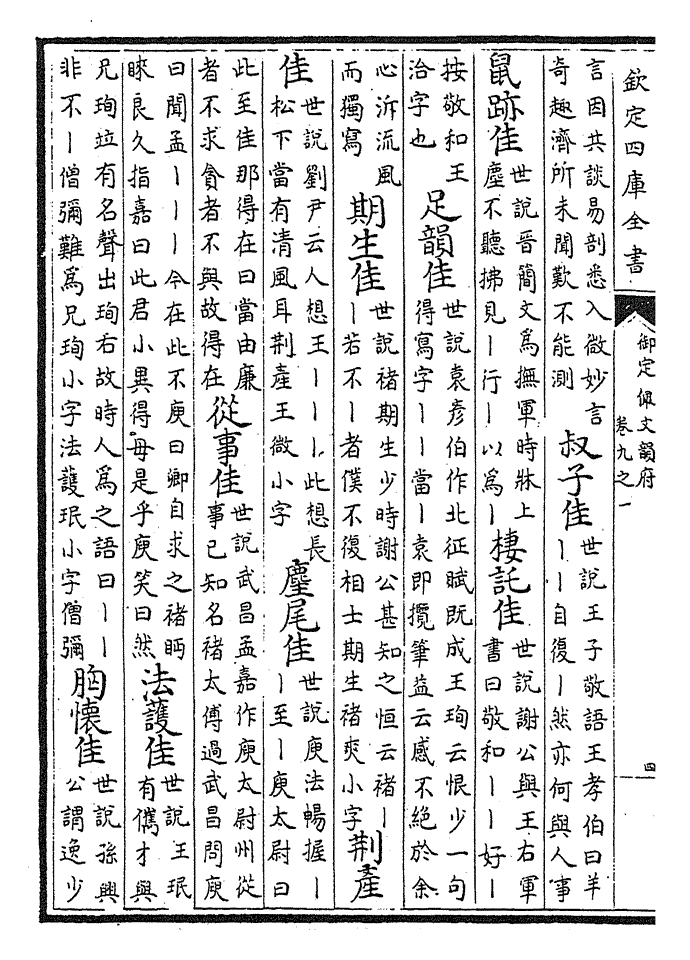 欽定四庫全書
御定佩文韻府
卷九之一
四
言因共談易剖悉入微妙言
奇趣濟所未聞歎不能測
叔子佳
世說王子敬語王孝伯曰羊
丨丨自復丨然亦何與人事
鼠跡佳
世說晉簡文為撫軍時牀上
塵不聽拂見丨行丨以為丨
棲託佳
世說謝公與王右軍
書曰敬和丨丨好丨
按敬和王
洽字也
足韻佳
世說袁彥伯作北征賦既成王珣云恨少一句
得寫字丨丨當丨袁即攬筆益云感不絕於余
心泝流風
而獨寫
期生佳
世說禇期生少時謝公甚知之恒云禇丨
丨若不丨者僕不復相士期生禇爽小字
荆產
佳
世說劉尹云人想王丨丨丨此想長
松下當有清風耳荆產王微小字
麈尾佳
世說庾法暢握丨
丨至丨庾太尉曰
此至佳那得在曰當由廉
者不求貪者不與故得在
從事佳
世說武昌孟嘉作庾太尉州從
事已知名禇太傅過武昌問庾
曰聞孟丨丨丨今在此不庾曰卿自求之禇眄
睞良久指嘉曰此君小異得毋是乎庾笑曰然
法護佳
世說王珉
有儁才與
兄珣竝有名聲出珣右故時人為之語曰丨丨
非不丨僧彌難為兄珣小字法護珉小字僧彌
胸懷佳
世說孫興
公謂逸少